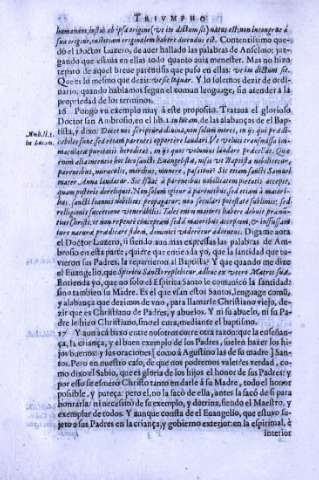 TRIVMPHO
humanâm, iustâ ab ipsa origine (ve ita dictum sit) natus est; non incongruè à
sua origine, nostram originalem habere dicendus est. Contentissimo que-
dò el Doctor Luzero, de auer hallado las palabras de Anselmo; juz-
gando que estaua en ellas todo quanto auia menester. Mas no hizo
reparo de aquel breue parentesis que puso en ellas: ve ita dictum sit.
Que es lo mismo que dezir verse loquar. Y lo solemos dezir de ordi-
nario, quando hablamos segun el comun lenguage, sin atender à la
propiedad de los terminos.
16 Pongo vn exemplo muy à este proposito. Trataua el glorioso
Doctor san Ambrosio, en el lib. 1. in Lucam, de las alabanças de el Bap-
tista, y dixo: Docet nos scriptura diuina, non solum mores, in ijs qui prædi-
cabiles sunt, sed etiam parentes oportere laudari. Ve veluti transmissa im-
maculatæ puritatis hæreditas, in ijs quos volumus laudare præcellat. Qua
enim alia intentio hoc loco sancti Euangelistæ, nisi vt Baptista nobilitetur,
parentibus, miraculis, moribus, munere, passione? Sic etiam sancti Samuel
mater Anna laudatur. Sic Isaac à parentibus nobilitatem pietatis accepit,
quam posteris dereliquit. Non solum igitur à parentibus, sed etiam à maiori-
bus, sancti Ioannis nobilitas propagatur; non seculari potestate sublimis; sed
religionis successione venerabilis. Tales enim maiores habere debuit prænun-
tius Christi, vt non repentè conceptam sed à maioribus acceptam, &
ture natura prædicare fidem, dominici videretur aduentus. Digame aora
el Doctor Luzero, si siendo aun mas expressas las palabras de Am-
brosio en esta parte, quiere que entienda yo, que la santidad que tu-
uieron sus Padres, la tuuieron en el Baptista? Y que quando me dize
el Euangelio, que Spiritu Sancto replebitur adhuc ex vtero Matris suæ.
Entienda yo, que no solo el Espiritu Santo le comunicò la santidad
sino tambien su Madre. Es el que eran estos Santos, lenguage comun,
y alabança que dezimos de vno, para llamarle Christiano viejo, de-
zir que es Christiano de Padres, y abuelos. Y ni su abuelo, ni su Pa-
dre le hizo Christiano, sino el cura, mediante el baptismo.
17 Y aun acà hizo entre nosotros corre otra razon: que la enseñan-
ça, la criança, y el buen exemplo de los Padres, suelen hazer los hi-
jos buenos: y las oraciones [como à Agustino las de su madre] San-
tos. Pero en nuestro caso, de que nos podremos valer? es verdad, co-
mo dixo el Sabio, que es gloria de los hijos el honor de sus Padres: y
por esso se esmerò Christo tanto en darle à su Madre, todo el honor
possible, y pureça: pero el, no la sacò de ella, antes la sacò de si para
honrarla. ni necessitò de su exemplo, y dotrina, siendo el Maestro, y
exemplar de todos. Y aunque consta de el Euangelio, que estuvo su-
jeto à sus Padres en la criança, y gobierno exterior: en la espiritual, è
interior